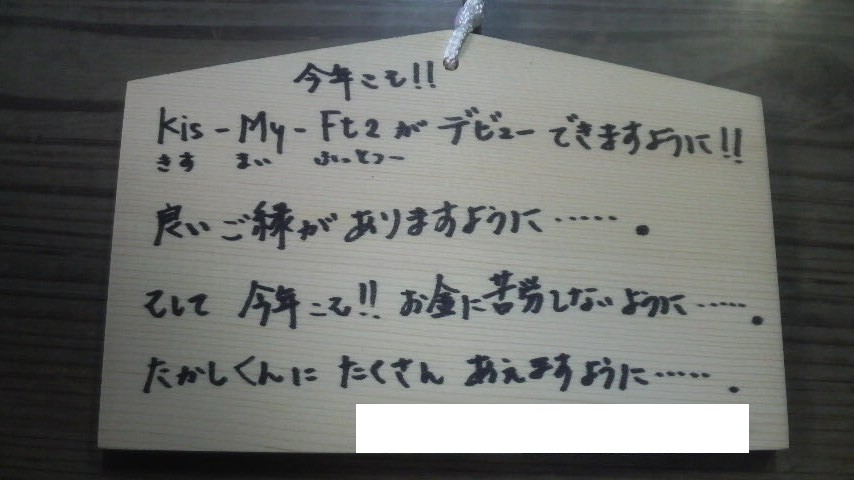 今年こそ!!
Kis-My-Ft2が デビューできますように!!
きす まい ふっとつー
良いご縁がありますように‥‥‥。
そして 今年こそ!! お金に苦労しないように‥‥‥。
たかしくんに たくさん あえますように‥‥‥。